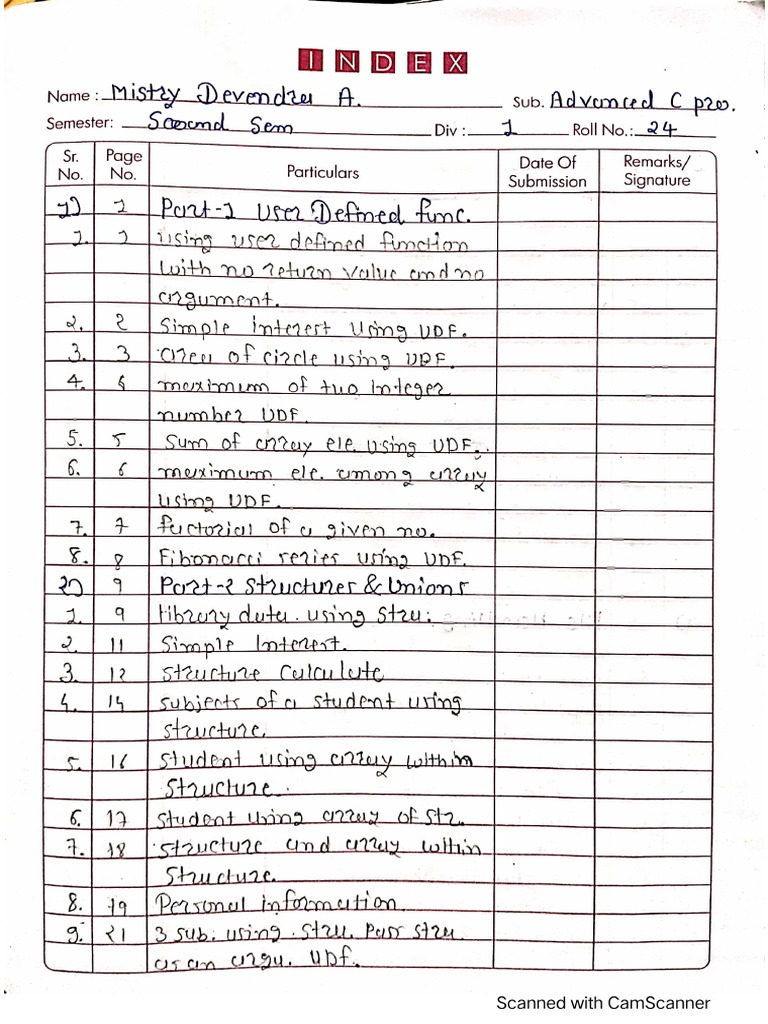 INDEX
Name : Mistry Devendra A. Sub. Advanced C pro.
Semester: Second Sem Div : 1 Roll No.: 24
Sr. No. Page No. Particulars Date Of Submission Remarks/ Signature
1) 1 Part-1 User Defined func.
1. 1 using user defined function
with no return value and no
argument.
2. 2 Simple interest Using UDF.
3. 3 area of circle using UDF.
4. 4 maximum of two integer
number UDF.
5. 5 Sum of array ele. using UDF.
6. 6 maximum ele. among array
using UDF.
7. 7 factorial of a given no.
8. 8 Fibonacci series using UDF.
2) 9 Part-2 Structures & Unions
1. 9 library data using stru.
2. 11 Simple Interest.
3. 12 Structure Calculate
4. 14 subjects of a student using
structure.
5. 16 student using array within
structure.
6. 17 student using array of str.
7. 18 structure and array within
structure.
8. 19 Personal information
9. 21 3 sub. using stru. Pass stru
as an argu. UDF.
Scanned with CamScanner